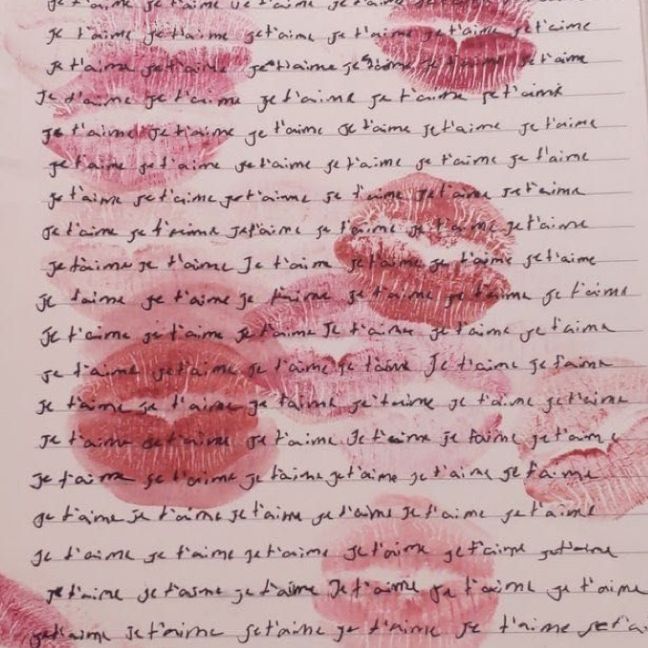 je t'aime je t'aime je t'aime je t'aime je t'aime je t'aime
je t'aime je t'aime je t'aime je t'aime je t'aime je t'aime
je t'aime je t'aime je t'aime je t'aime je t'aime je t'aime
Je t'aime je t'aime je t'aime je t'aime je t'aime
je t'aime je t'aime je t'aime je t'aime je t'aime je t'aime
je t'aime je t'aime je t'aime je t'aime je t'aime je t'aime
je t'aime je t'aime je t'aime je t'aime je t'aime je t'aime
je t'aime je t'aime je t'aime je t'aime je t'aime je t'aime
je t'aime je t'aime Je t'aime je t'aime je t'aime je t'aime
je t'aime je t'aime je t'aime je t'aime je t'aime je t'aime
Je t'aime je t'aime je t'aime Je t'aime je t'aime je t'aime
je t'aime je t'aime je t'aime je t'aime Je t'aime je t'aime
je t'aime je t'aime je t'aime je t'aime je t'aime je t'aime
je t'aime je t'aime je t'aime Je t'aime je t'aime je t'aime
je t'aime je t'aime je t'aime je t'aime je t'aime je t'aime
je t'aime Je t'aime Je t'aime je t'aime Je t'aime je t'aime
je t'aime je t'aime je t'aime je t'aime je t'aime je t'aime
je t'aime je t'aime je t'aime Je t'aime je t'aime je t'aime
je t'aime Je t'aime je t'aime je t'aime je t'aime je t'ai